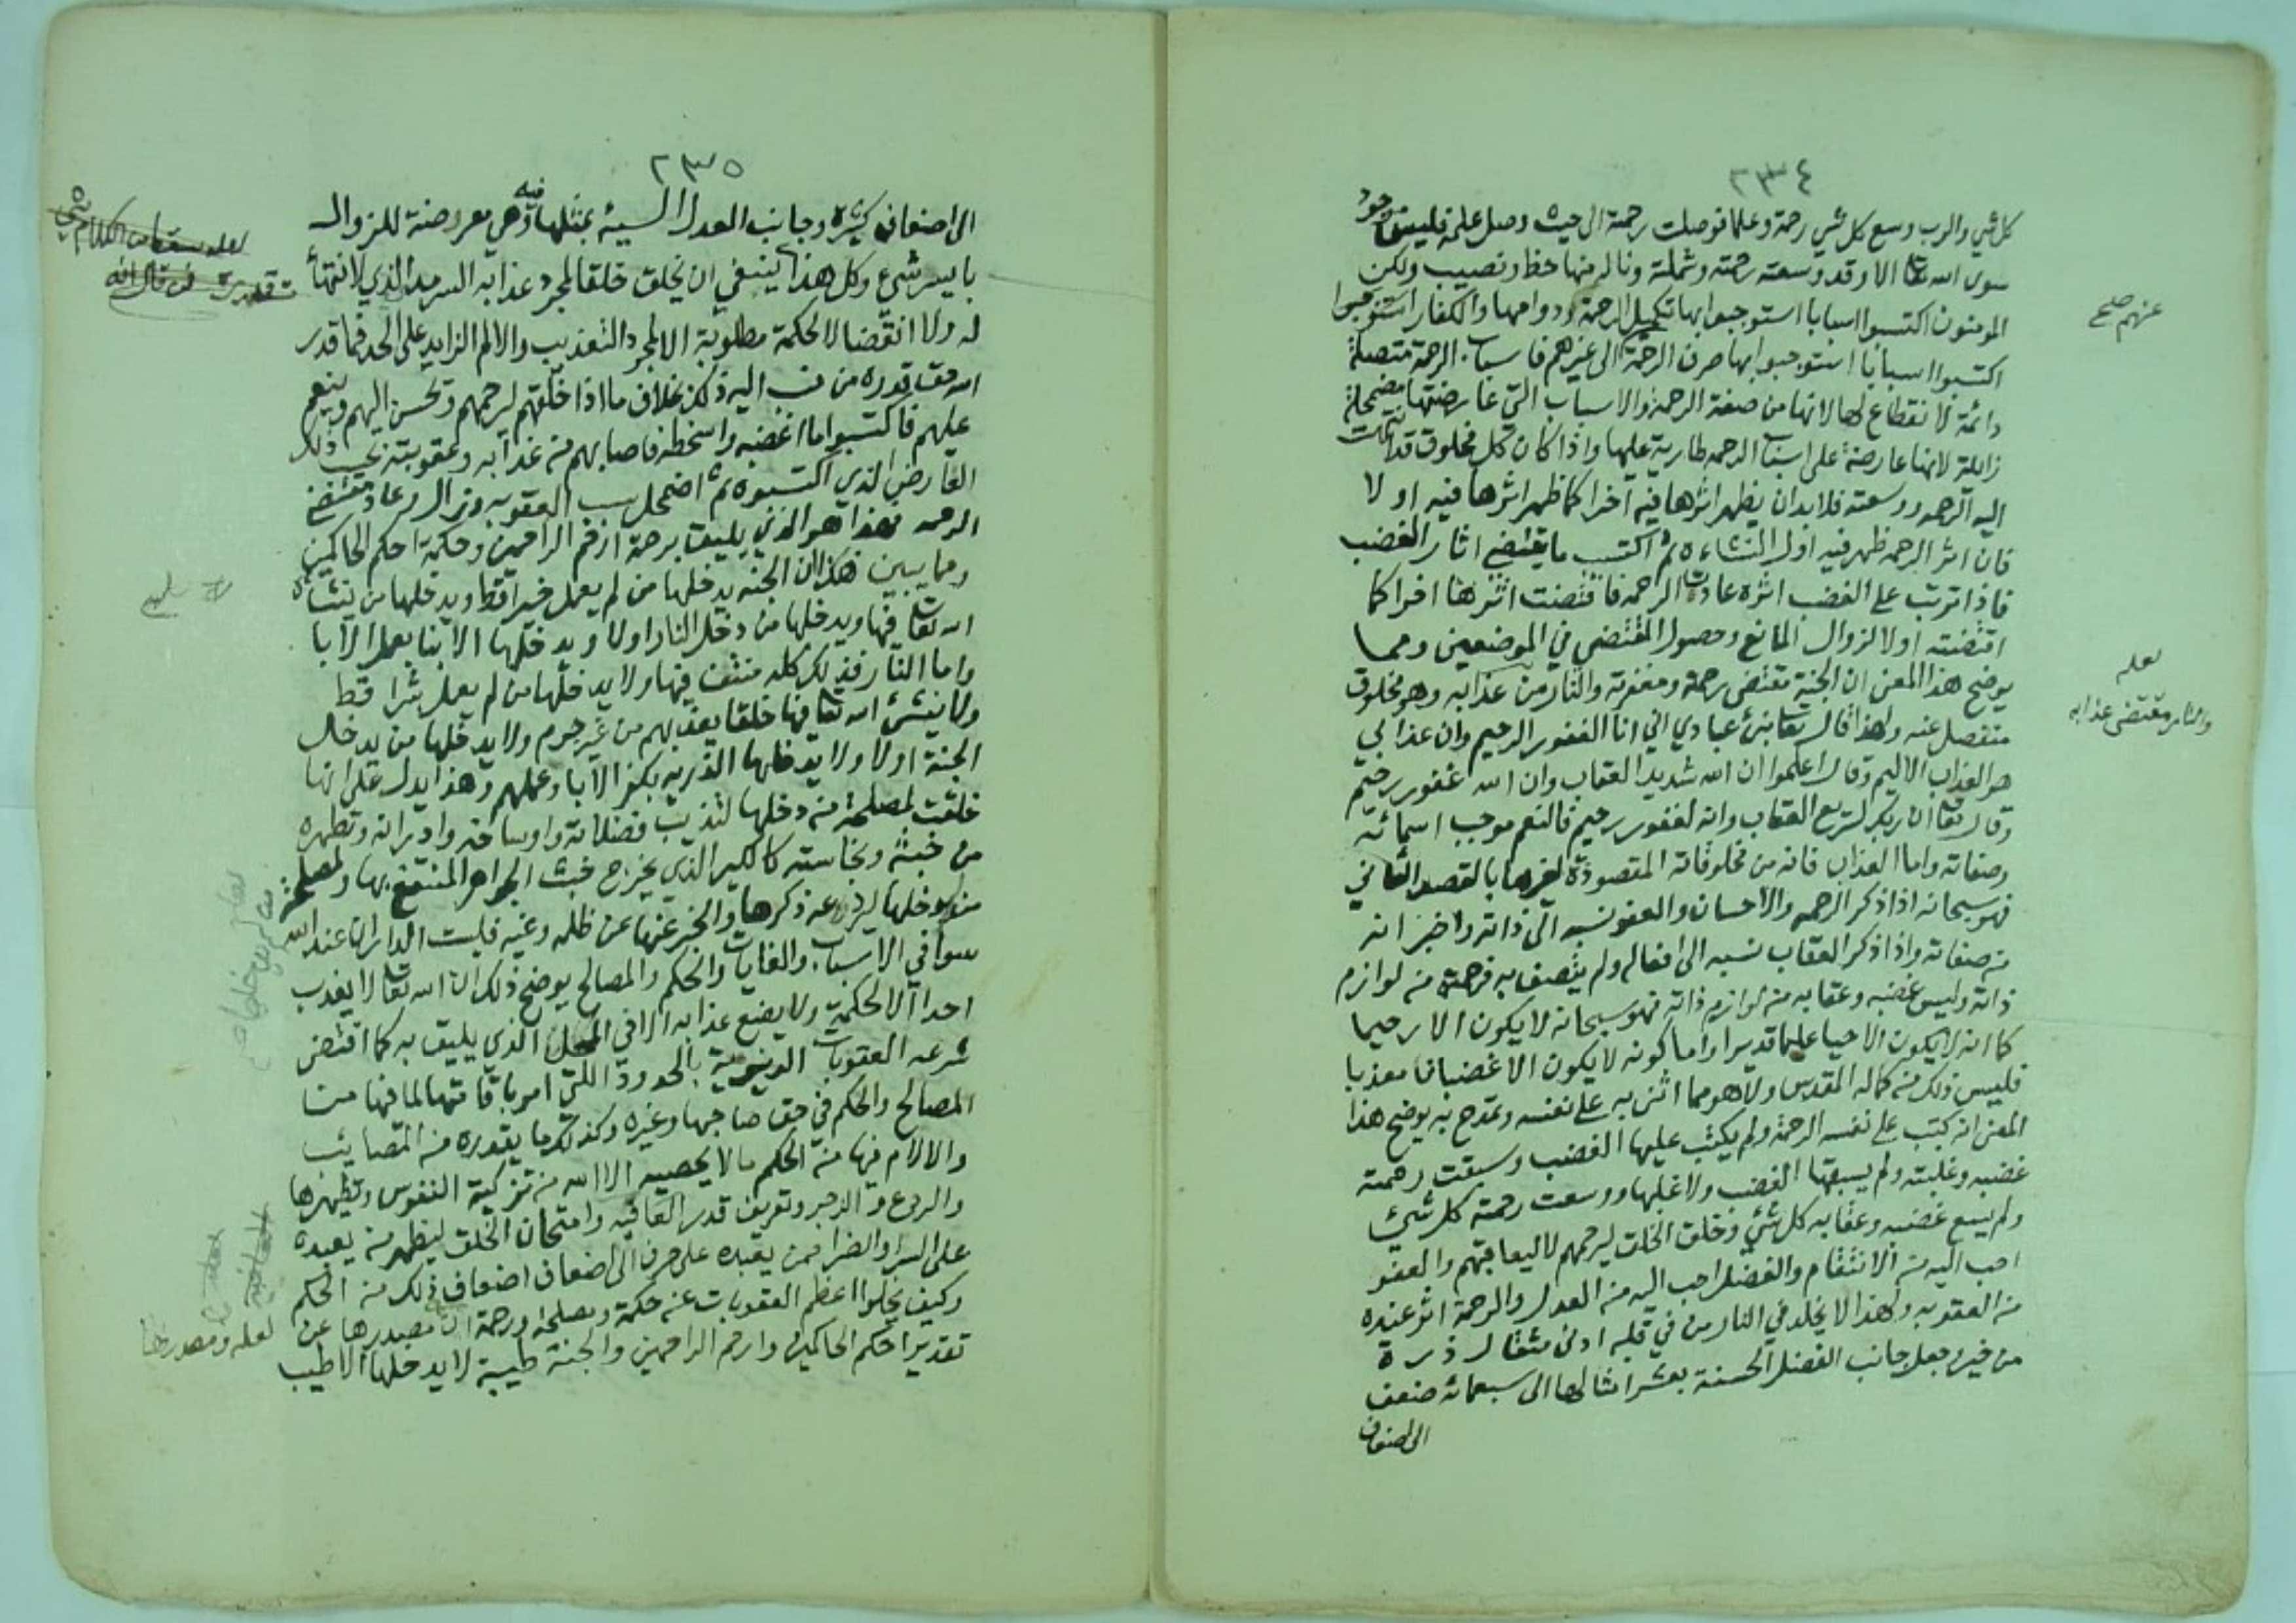 ٢٣٤
كل شي والرب وسع كل شي رحمة وعلما فوصلت رحمته الى حيث وصل علمه فليس موجود
سوى الله تعا الا وقد وسعته رحمته وشملته وناله منها حظ ونصيب ولكن
المومنون اكتسبوا اسبابا استوجبوا بها تكميل الرحمة ودوامها والكفار استوجبوا
اكتسبوا اسبابا استوجبوا بها صرف الرحمة الى غيرهم فاسباب الرحمة متصلة
دائمة لا نقطاع لها لانها من صفة الرحمة والاسباب التي عارضتها مضمحلة
زايلة لانها عارضة على اسباب الرحمه طارية عليها واذا كان كل مخلوق قد انتهت
اليه الرحمه ووسعته فلا بد ان يظهر اثرها فيه آخرا كما ظهر اثرها فيه اولا
فان اثر الرحمه ظهر فيه اول النشاءة ثم اكتسب ما يقتضي اثار الغضب
فاذا ترتب على الغضب اثره عادت الرحمه فاقتضت اثرها اخرا كما
اقتضته اولا لزوال المانع وحصول المقتضي في الموضعين ومما
يوضح هذا المعنى ان الجنة تقتضى رحمته ومغفرته والنار من عذابه وهو مخلوق
منفصل عنه ولهذا قال تعا نبئ عبادي اني انا الغفور الرحيم وان عذابي
هو العذاب الاليم وقال اعلموا ان الله شديد العقاب وان الله غفور رحيم
وقال تعا ان ربك لسريع العقاب وانه لغفور رحيم فالنعم موجب اسمائه
وصفاته واما العذاب فانه من مخلوقاته المقصودة لغيرها بالقصد الثاني
فهو سبحانه اذا ذكر الرحمه والاحسان والعفو نسبه الى ذاته واخبر انه
من صفاته واذا ذكر العقاب نسبه الى افعاله ولم يتصف به فرحمته من لوازم
ذاته وليس غضبه وعقابه من لوازم ذاته فهو سبحانه لا يكون الا رحيما
كما انه لا يكون الا حيا عليما قديرا واما كونه لا يكون الا غضبانا معذبا
فليس ذلك من كماله المقدس ولا هو مما اثنى به على نفسه وتمدح به يوضح هذا
المعنى انه كتب على نفسه الرحمة ولم يكتب عليها الغضب وسبقت رحمته
غضبه وغلبته ولم يسبقها الغضب ولا غلبها ووسعت رحمته كل شيئ
ولم يسع غضبه وعقابه كل شئ وخلق الخلق ليرحمهم لا ليعاقبهم والعفو
احب اليه من الانتقام والفضل احب اليه من العدل والرحمة اثر عنده
من العقوبه ولهذا لا يخلد في النار من في قلبه ادنى مثقال ذرة
من خير وجعل جانب الفضل الحسنة بعشر امثالها الى سبعمائه ضعف
الى اضعاف
عنهم صح
لعله
والنار مقتضى عذابه
٢٣٥
الى اضعاف كثيرة وجانب العدل السيئه بمثلها فيه وهي معروضة للزوال
بايسر شيء وكل هذا ينبغي ان يخلق خلقا لمجرد عذابه السرمد الذي لا انتهاء
له ولا انقضا لا لحكمة مطلوبة الا لمجرد التعذيب والالم الزايد على الحد فما قدر
الله حق قدره من نسب اليه ذلك بخلاف ما اذا خلقهم ليرحمهم ويحسن اليهم وينعم
عليهم فاكتسبوا ما اغضبه واسخطه فاصابهم من عذابه وعقوبته بحسب ذلك
العارض الذي اكتسبوه ثم اضمحل سبب العقوبه وزال وعاد مقتضي
الرحمه فهذا هو الذي يليق برحمة ارحم الراحمين وحكمة احكم الحاكمين
ومما يبين هذا ان الجنه يدخلها من لم يعمل خيرا قط ويدخلها من ينشاه
الله تعا فيها ويدخلها من دخل النار اولا ويدخلها الابنا بعمل الابا
واما النار فذلك كله منتف فيها ولا يدخلها من لم يعمل شرا قط
ولا ينشئ الله تعا فيها خلقا يعذبهم من غير جرم ولا يدخلها من يدخل
الجنة اولا ولا يدخلها الذريه بكفر الابا وعملهم وهذا يدل على انها
خلقت لمصلحة من دخلها لتذيب فضلاته واوساخه وادرانه وتطهره
من خبثه ونجاسته كالكير الذي يخرج خبث الجواهر المنتفع بها ولمصلحة
من لم يدخلها ليردعه ذكرها والخبر عنها عن ظلمه وغيه فليست الداران عند الله
سوا في الاسباب والغايات والحكم والمصالح يوضح ذلك ان الله تعا لا يعذب
احدا الا لحكمة ولا يضع عذابه الا في المحل الذي يليق به كما اقتضى
شرعه العقوبات الدنيوية بالحدود اللتي امر باقامتها لما فيها من
المصالح والحكم في حق صاحبها وغيره وكذلك ما يقدره من المصايب
والالام فيها من الحكم ما لا يحصيه الا الله من تزكية النفوس وتطهيرها
والردع والزجر وتعريف قدر العافيه وامتحان الخلق ليظهر من يعبده
على السرا والضرا فمن يعبده على حرف الى اضعاف اضعاف ذلك من الحكم
وكيف يخلوا اعظم العقوبات عن حكمة ومصلحة ورحمة ان مصدرها عن
تقدير احكم الحاكمين وارحم الراحمين والجنة طيبة لا يدخلها الا طيب
لعله سقط من الكلام شي
تقديره
لعله ومصدرها